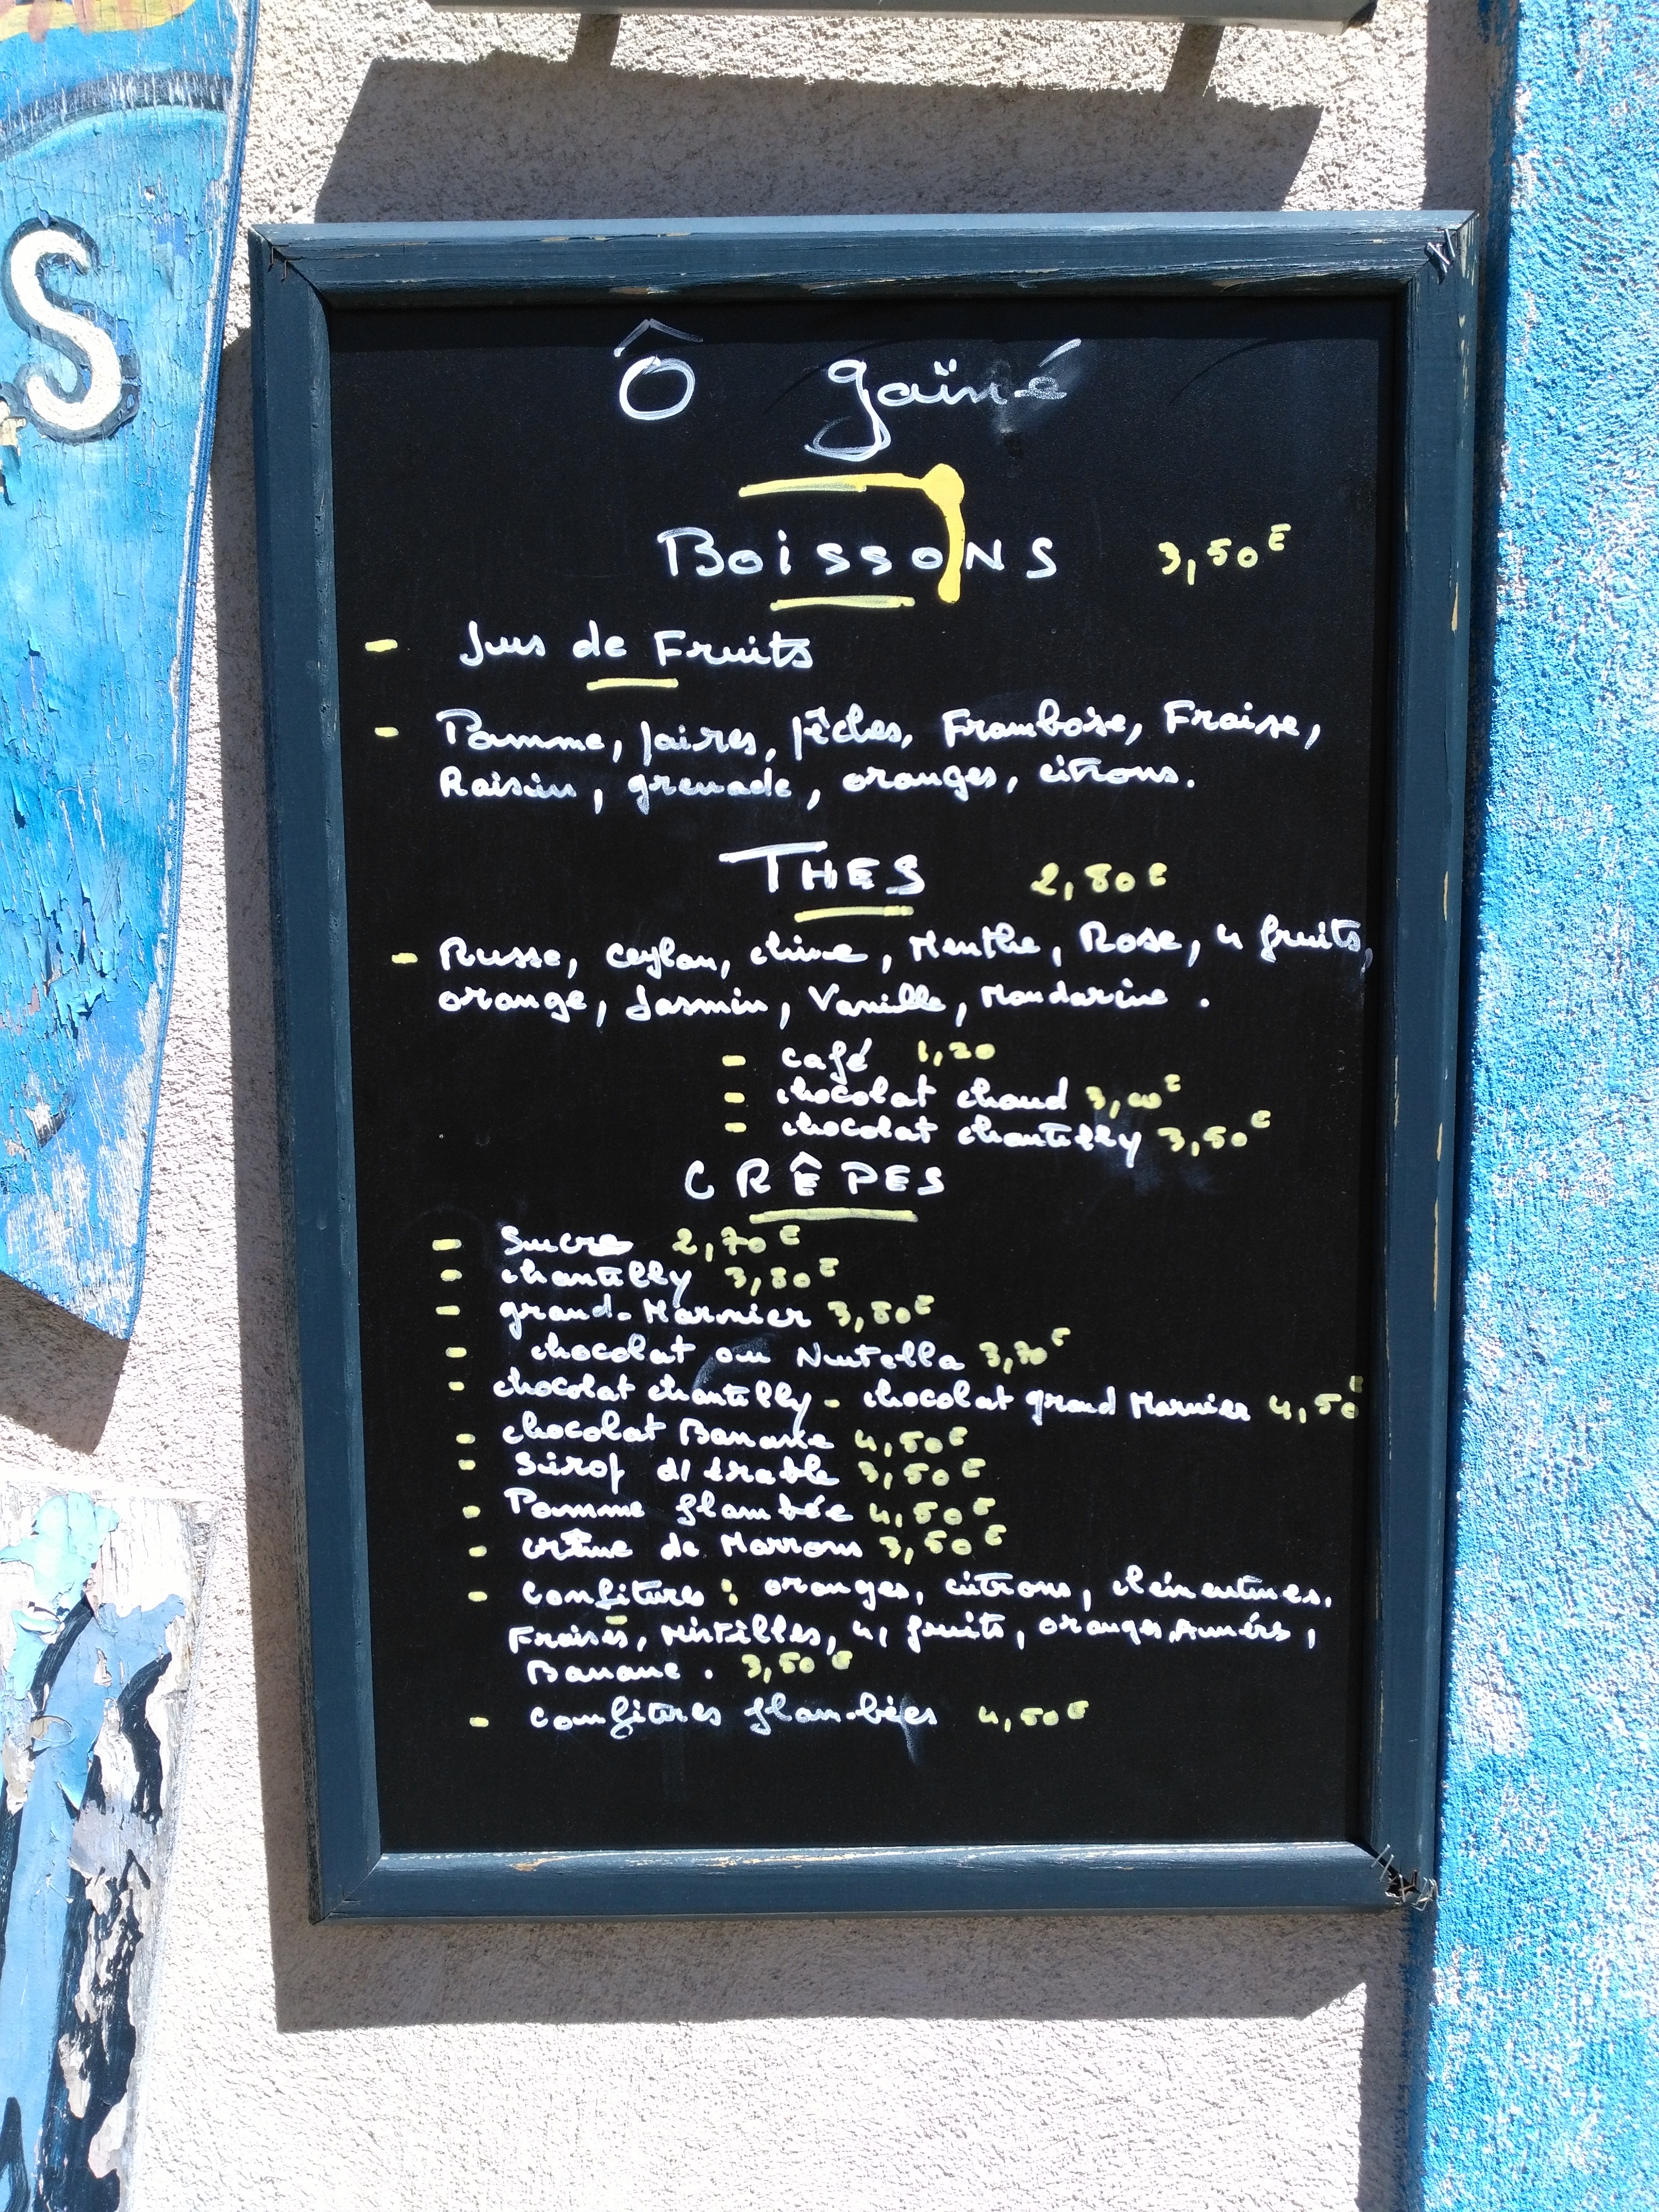 S
Ô gaïné
BoissoNS 3,50€
- Jus de Fruits
- Pomme, poires, pêches, Framboise, Fraise,
Raisin, grenade, oranges, citrons.
THES 2,80€
- Russe, Ceylan, chine, Menthe, Rose, 4 fruits,
orange, Jasmin, Vanille, Mandarine.
- café 1,20
- chocolat chaud 3,00€
- chocolat chantilly 3,50€
CRÊPES
- Sucre 2,70€
- chantilly 3,80€
- grand-Marnier 3,80€
- chocolat ou Nutella 3,70€
- chocolat chantilly - chocolat grand Marnier 4,50€
- chocolat Banane 4,50€
- Sirop d'érable 3,50€
- Pomme flambée 4,50€
- crème de Marrons 3,50€
- confitures : oranges, citrons, clémentines,
Fraises, Mirtilles, 4 fruits, oranges Amères,
Banane. 3,50€
- confitures flambées 4,50€